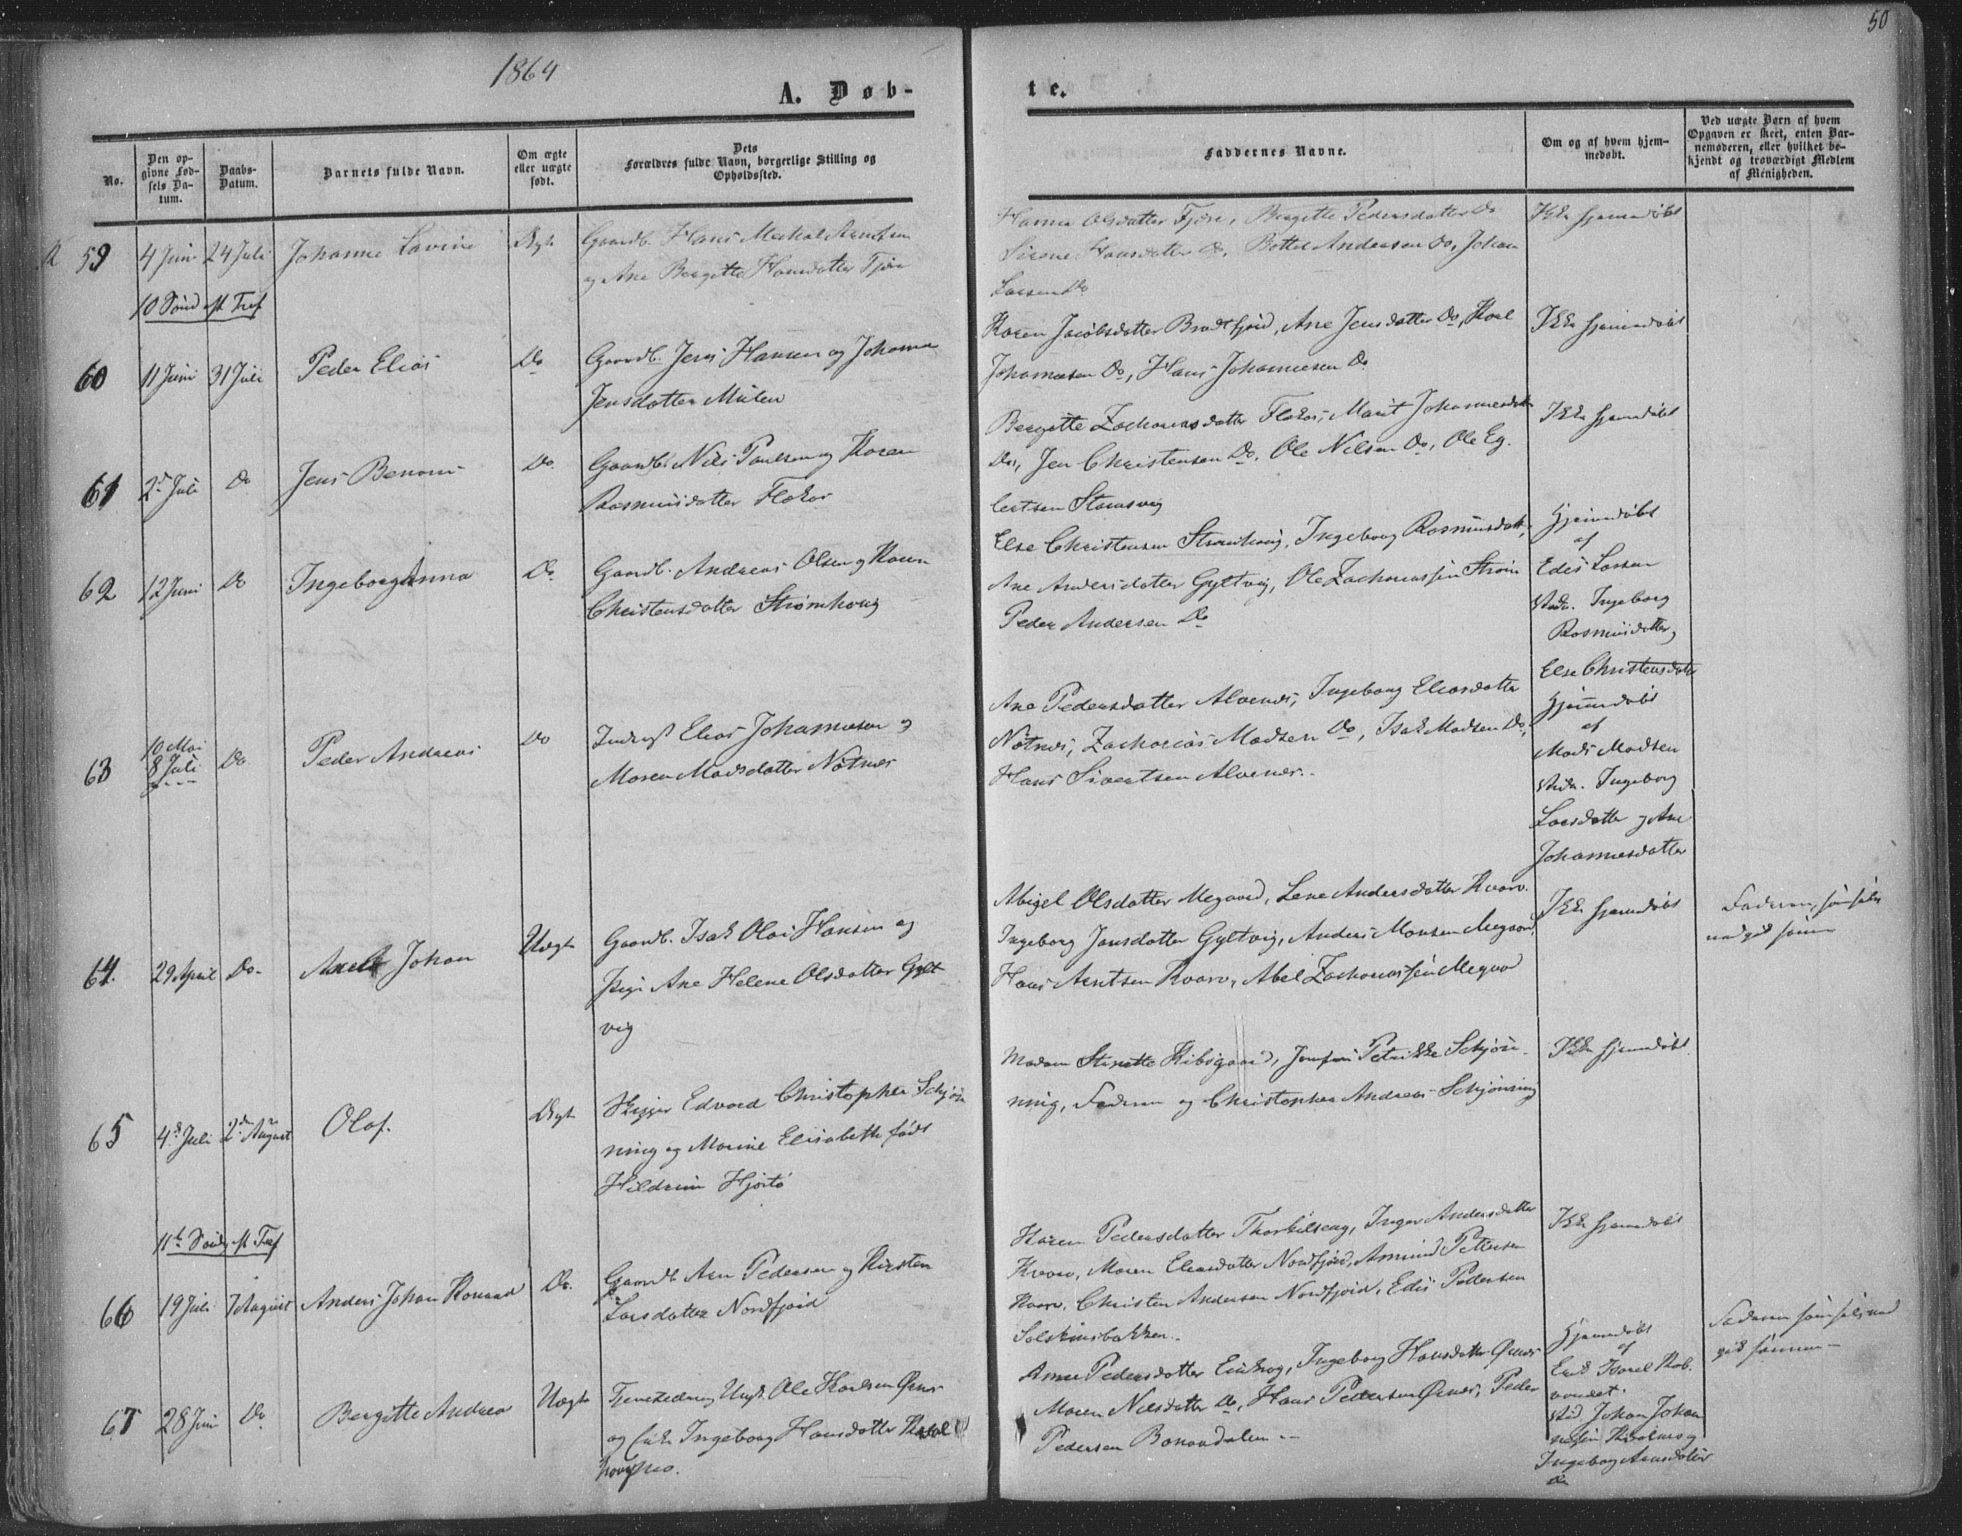 50
1864
A. Døb-
te.
No.
Den op-
givne Fød-
sels Da-
tum.
Daabs-
Datum.
Barnets fulde Navn.
Om ægte
eller uægte
født.
Dets
Forældres fulde Navn, borgerlige Stilling og
Opholdssted.
Faddernes Navne.
Om og af hvem hjem-
medøbt.
Ved uægte Børn af hvem
Opgaven er skeet, enten Bar-
nemoderen, eller hvilket be-
kjendt og troværdigt Medlem
af Menigheden.
59 4 Juni 24 Juli Johanne Lovine Ægte Gaardb. Hans Mechal Arntsen
og Ane Bergitte Hansdatter Fjøre
Hanna Olsdatter Fjøre, Bergitte Pedersdatter Do
Sirene Hansdatter Do, Bottel Andersen Do, Johan
Larsen Do
Ikke hjemmedøbt
10 Sønd eft Tref
60 11 Juni 31 Juli Peder Elias Do Gaardb. Jens Hansen og Johanna
Jensdatter Mulen
Karen Jacobsdatter Bradtfjord, Ane Jensdatter Do, Karl
Johannesen Do, Hans Johannesen Do
Ikke hjemmedøbt
61 2d Juli Do Jens Benoni Do Gaardb. Nils Paulsen og Karen
Rasmusdatter Flokos
Bergitte Zachariasdatter Flokos, Marit Johannesdatter
Do, Jen Christensen Do, Ole Nilsen Do, Ole Eg.
bertsen Stamsvig
Ikke hjemmedøbt
62 12 Juni Do Ingeborg Anna Do Gaardb. Andreas Olsen og Karen
Christensdatter Strømhoug
Else Christensen Strømhoug, Ingeborg Rasmusdatt,
Ane Andersdatter Gyltvig, Ole Zachariassen Strøm
Peder Andersen Do
Hjemmedøbt
af
Edis Larsen
Vidn. Ingeborg
Rasmusdatter,
Else Christensdatter
63 10 Mai
8 Juli Do Peder Andreas Do Inderst Elias Johannesen og
Maren Madsdatter Notnes
Ane Pedersdatter Alvenes, Ingeborg Eliasdatter
Notnes, Zacharias Madsen Do, Isak Madsen Do,
Hans Sivertsen Alvenes.
Hjemmedøbt
af
Mads Madsen
Vidn. Ingeborg
Larsdatter og Ane
Johannesdatter
64. 29 April Do. Johan Uægte Gaardb. Isak Olai Hansen og
Pige Ane Helene Olsdatter Gylt
vig
Abigel Olsdatter Megaard, Lene Andersdatter Kvarv.
Ingeborg Jansdatter Gyltvig, Anders Monsen Megaard,
Hans Arntsen Kvarv, Abel Zachariassen Megaard
Ikke hjemmedøbt
Faderen, som selv
65 4d Juli 2den August Olaf. Ægte Skipper Edvard Christopher Schjøn
ning og Marine Elisabeth født
Hildrum Hjørtø
Madam Stinette Kibsgaard, Jomfru Petrikke Schjøn-
ning, Faderen og Christopher Andreas Schjønning
Ikke hjemmedøbt.
11te Sønd eft Tref
66 19 Juli 7 August Anders Johan Konrad Do. Gaardb. Arn Pedersen og Kirsten
Larsdatter Nordfjord
Karen Pedersdatter Thorkilseng, Inger Andersdatter
Kvarv, Maren Eliasdatter Nordfjord, Amund Pettersen
Kvarv, Christen Andersen Nordfjord, Edis Pedersen
Solskinsbakken.
Ikke hjemmedøbt
67 28 Juni Do. Bergitte Andrea Uægte Tjenestedreng Ungk. Ole Karlsen Ørnes
og Enke Ingeborg Hansdatter
Anne Pedersdatter Ingeborg Hansdatter Ørnes
Maren Nilsdatter Do, Hans Pedersen Ørnes, Peder
Pedersen
Hjemmedøbt
af
Erik Israel
Vid. Johan Johan
Ingeborg Arnsdatter
Do
Faderen som selv